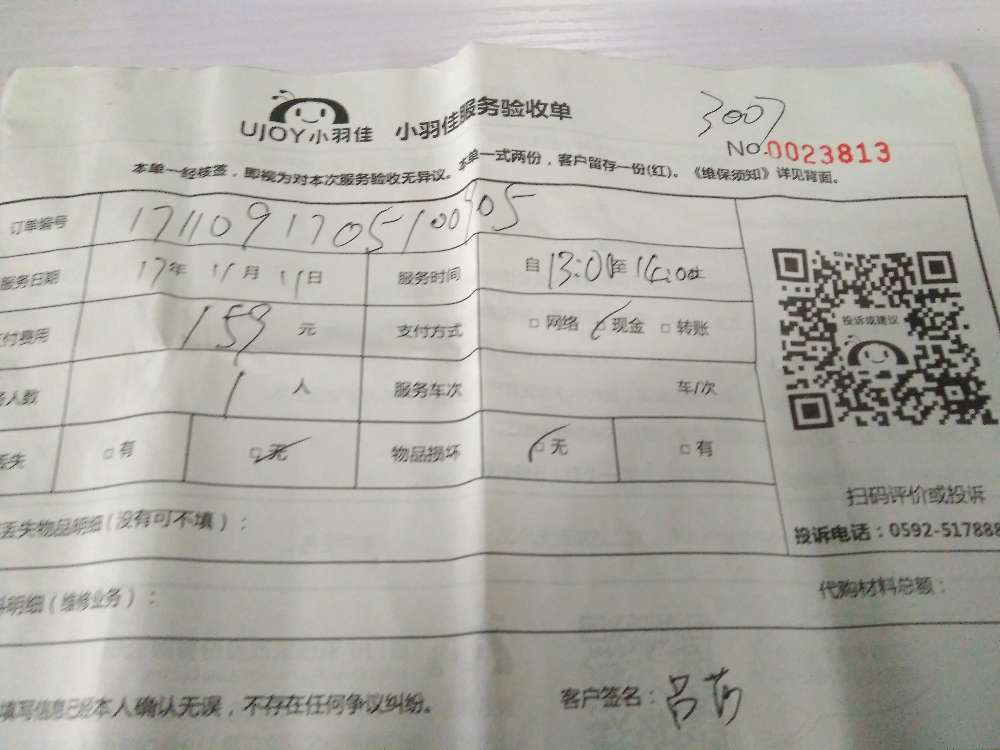 UJOY小羽佳 小羽佳服务验收单
3007
No.0023813
本单一经核签，即视为对本次服务验收无异议。本单一式两份，客户留存一份(红)。《维保须知》详见背面。
订单编号 1711091705100905
服务日期 17年 11月 11日 服务时间 自13:00至14:00止
付费用 159 元 支付方式 □网络 □现金 □转账
投诉或建议
人数 1 人 服务车次 车/次
丢失 □有 □无 物品损坏 □无 □有
扫码评价或投诉
丢失物品明细(没有可不填)：
投诉电话：0592-517888
明细(维修业务)： 代购材料总额：
填写信息已经本人确认无误，不存在任何争议纠纷。 客户签名：吕